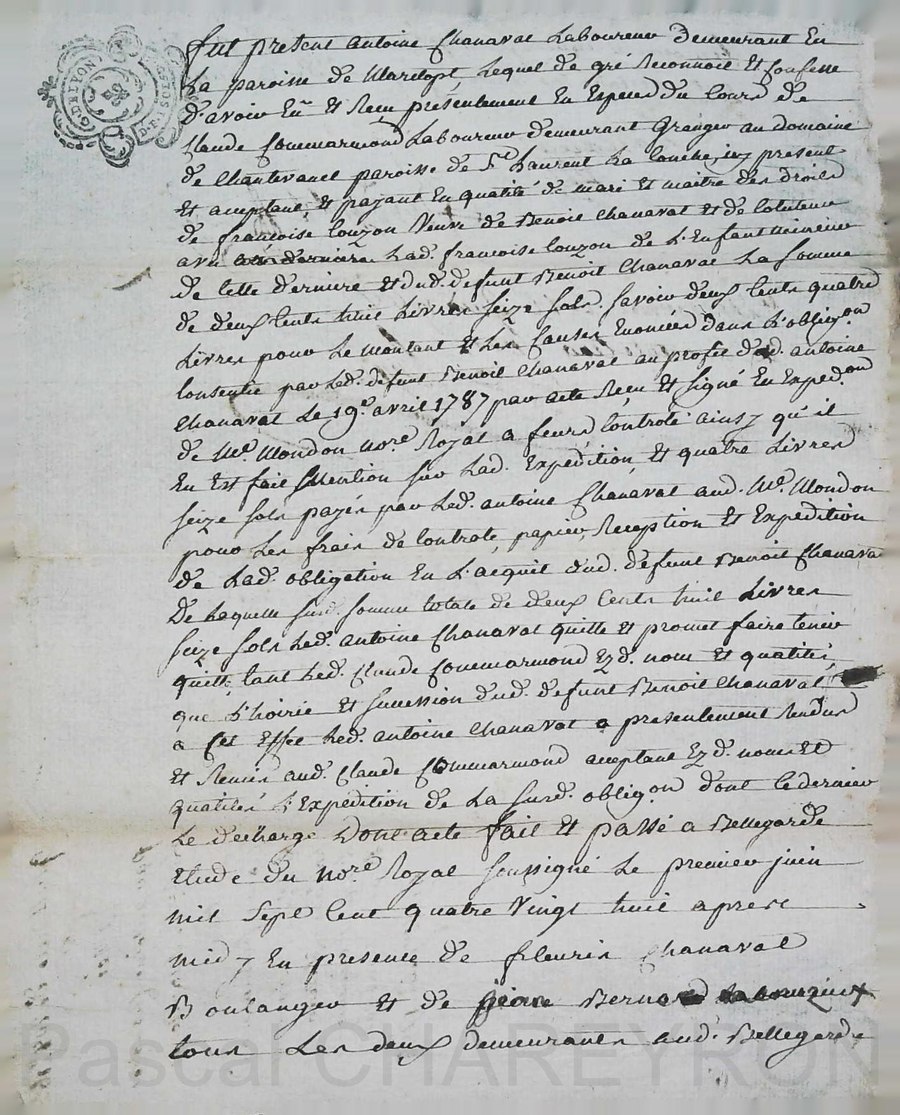 G. DE LYON
DEUX SOLS
fut present antoine Chanavat Laboureur demeurant En
La paroisse de Mardopt Lequel de gré Reconnoit Et Confesse
d'avoir Eu Et Reçu présentement En Especes du Cours de
Claude Commarmond Laboureur demeurant Granger au domaine
de Chantevanel paroisse de St. Laurent La Conche icy present
Et acceptant, Et payant En qualité de mari Et maitre des droits
de francoise Couzon Veuve de Benoit Chanavat Et de Cotuteur
avec Lad. francoise Couzon de L'Enfant mineur
de Cette derniere Et dud. defunt Benoit Chanavat La somme
de deux Cents huit Livres seize sols, savoir deux Cents quatre
Livres pour Le montant Et Les Causes Enoncées dans L'obligon.
Consentie par Led. defunt Benoit Chanavat au profit dud. antoine
Chanavat Le 19e. avril 1787 par acte Reçu Et signé En Expedon.
de Me. Mondon nore. Royal a feurs Controlé ainsy qu'il
En Est fait Mention sur Lad. Expedition, Et quatre Livres
seize sols payés par Led. antoine Chanavat aud. Me. Mondon
pour Les frais de Controle, papier, Reception Et Expedition
de Lad. obligation En L'acquit dud. defunt Benoit Chanavat
De Laquelle susd. somme totale de deux Cents huit Livres
seize sols Led. antoine Chanavat quitte Et promet faire tenir
quitte, tant Led. Claude Commarmond Ezd. nom Et qualités
que L'hoirie Et succession dud. defunt Benoit Chanavat,
a Cet Effet Led. antoine Chanavat a presentement Rendus
Et Remis aud. Claude Commarmond acceptant Ezd. noms Et
qualités L'Expedition de La susd. obligon. dont Ce dernier
Le decharge Dont acte fait Et passé a Bellegarde
Etude du Nore. Royal soussigné Le premier juin
mil sept Cent quatre Vingt huit apres
midy En presence de fleuris Chanavat
Boulanger Et de Bernard
tous Les deux demeurants aud. Bellegarde
Pascal CHAREYRON